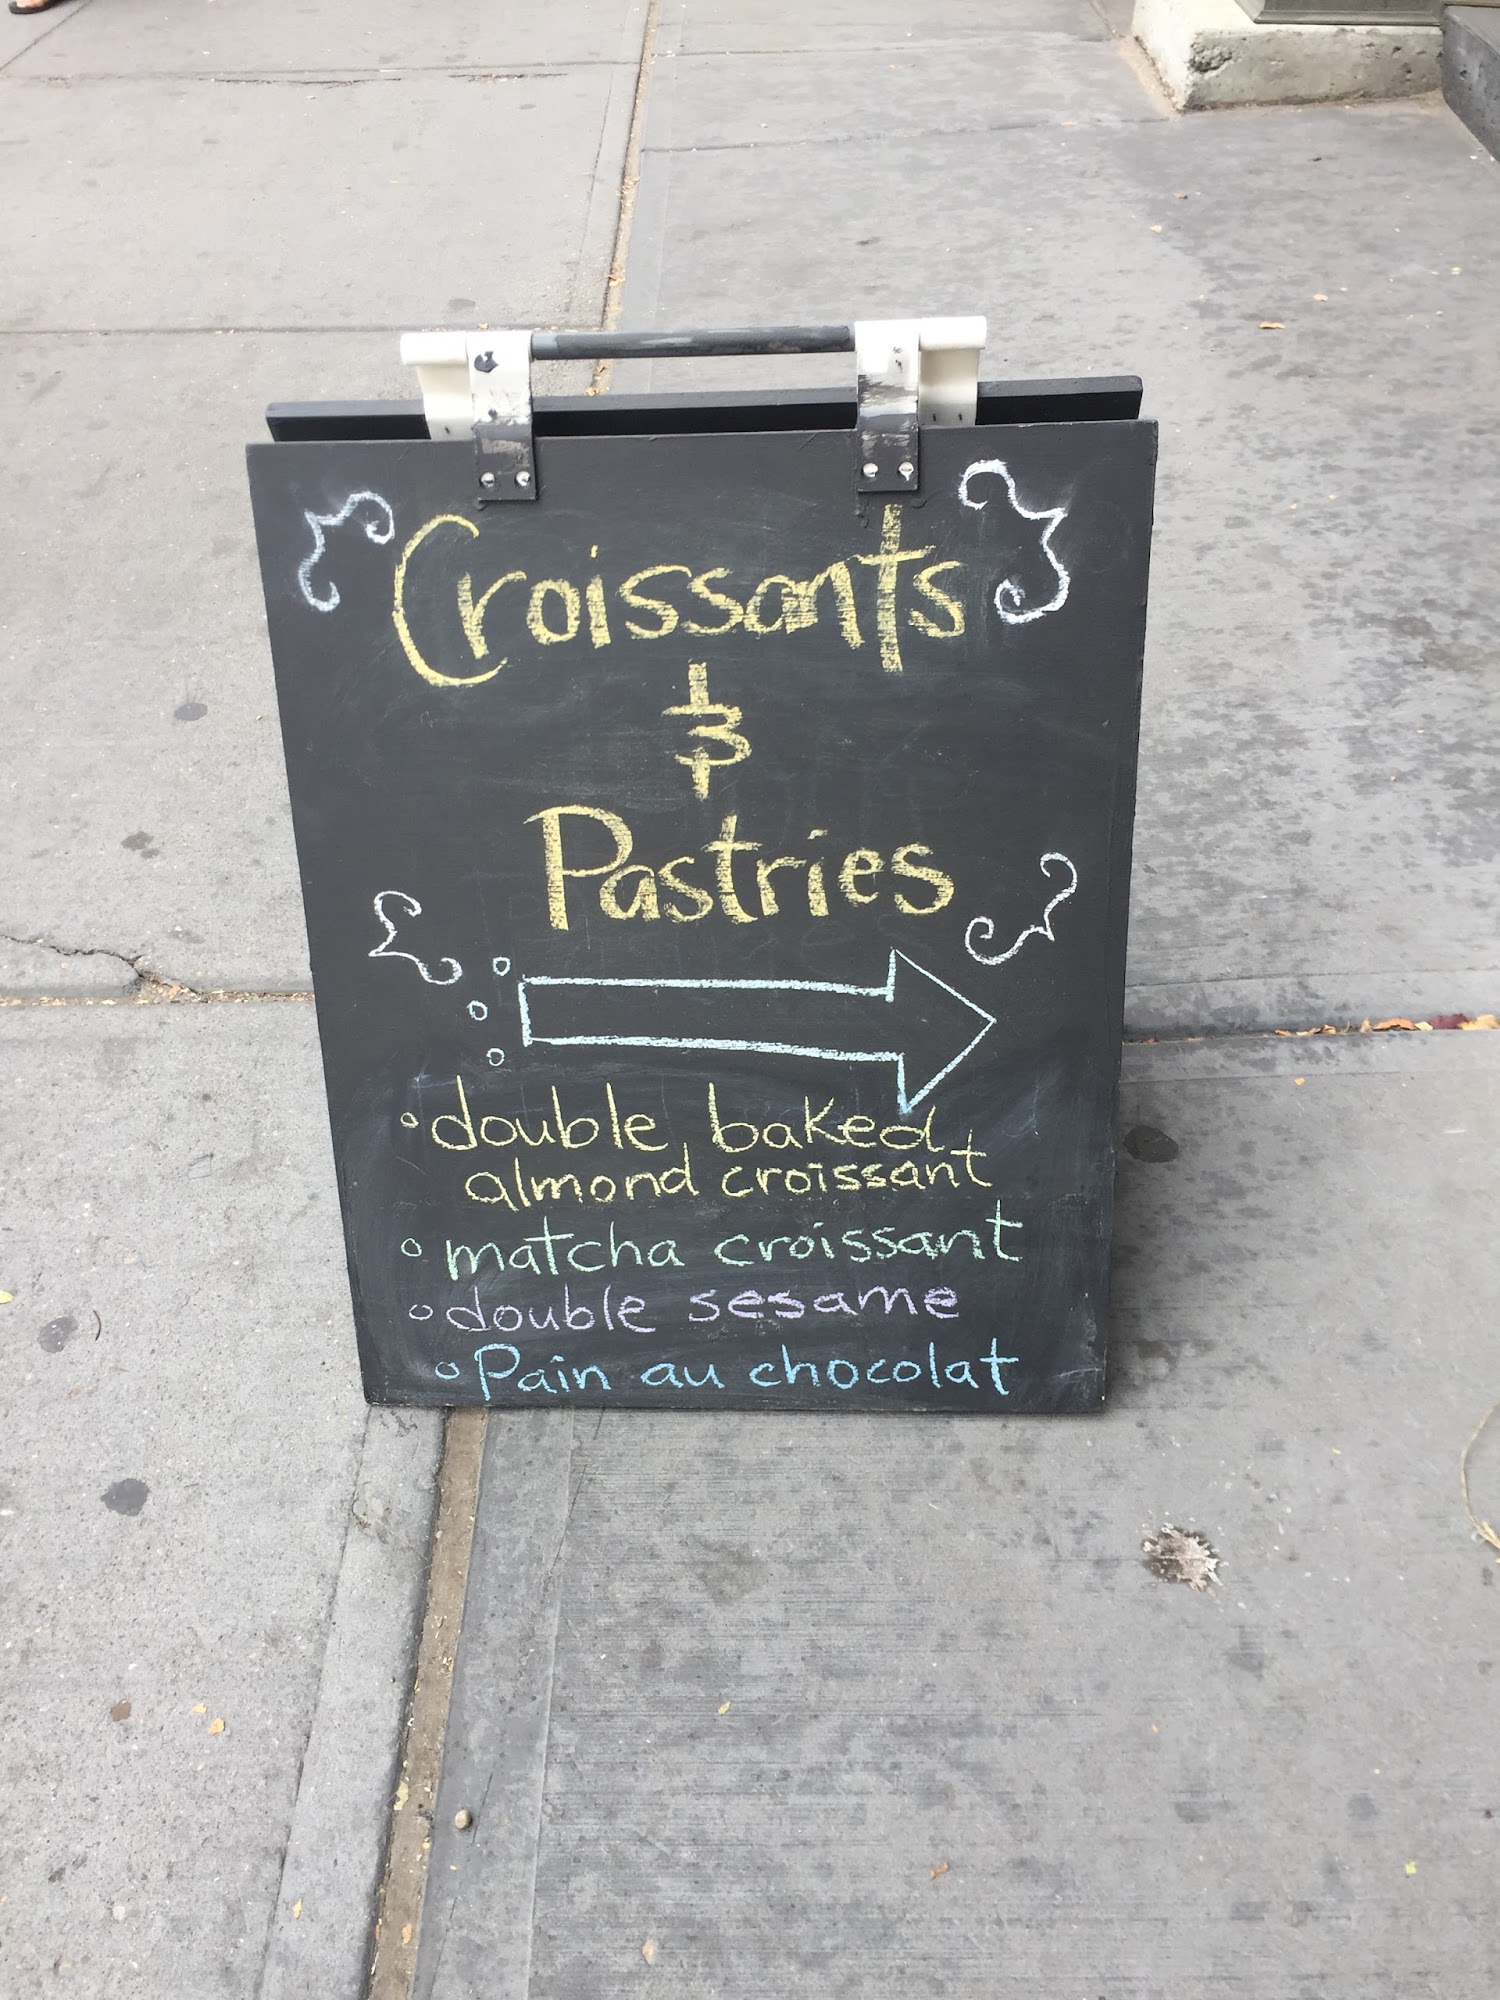 Croissants
&
Pastries
double baked
almond croissant
matcha croissant
double sesame
Pain au chocolat